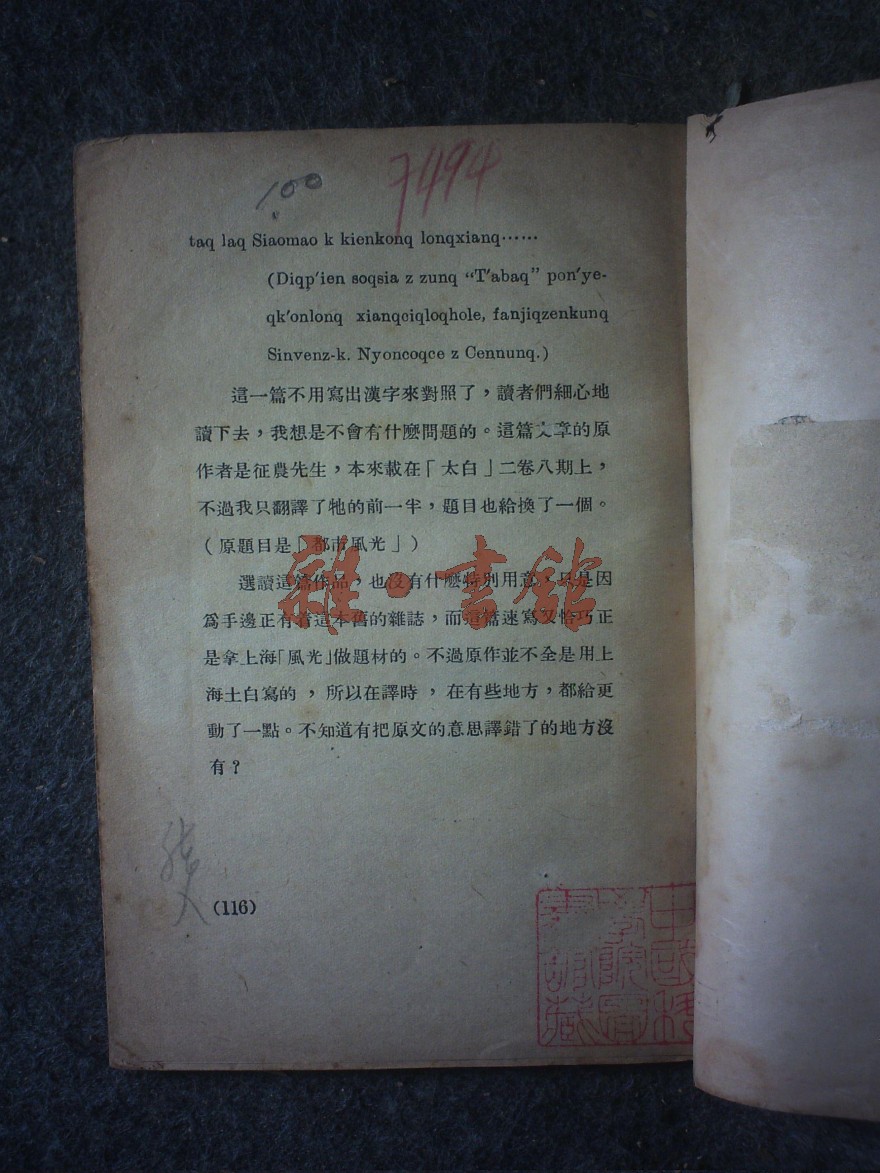 1.00
7494
taq laq Siaomao k kienkonq lonqxianq……
(Diqp'ien soqsia z zunq “T'abaq” pon'ye-
qk'onlonq xianqciqloqhole, fanjiqzenkunq
Sinvenz-k. Nyoncoqce z Cennunq.)
這一篇不用寫出漢字來對照了，讀者們細心地
讀下去，我想是不會有什麼問題的。這篇文章的原
作者是征農先生，本來載在「太白」二卷八期上，
不過我只翻譯了牠的前一半，題目也給換了一個。
（原題目是「都市風光」）
選讀這篇作品，也沒有什麼特別用意，只是因
爲手邊正有着這本舊的雜誌，而這篇速寫又恰巧正
是拿上海「風光」做題材的。不過原作並不全是用上
海土白寫的，所以在譯時，在有些地方，都給更
動了一點。不知道有把原文的意思譯錯了的地方沒
有？
雜·書館
(116)